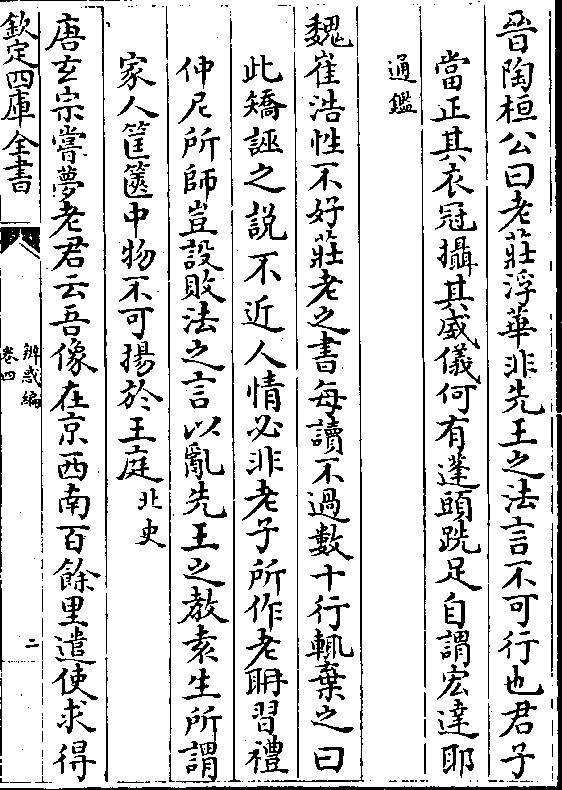 晉陶桓公曰老莊浮華非先王之法言不可行也君子
當正其衣冠攝其威儀何有蓬頭跣足自謂宏達耶
通鑑
魏崔浩性不好莊老之書每讀不過數十行輒棄之曰
此矯誣之説不近人情必非老子所作老耼習禮
仲尼所師豈設敗法之言以亂先王之教袁生所謂
家人筐篋中物不可揚於王庭北史
唐玄宗嘗夢老君云吾像在京西南百餘里遣使求得
欽定四庫全書
辨惑編
卷四
二